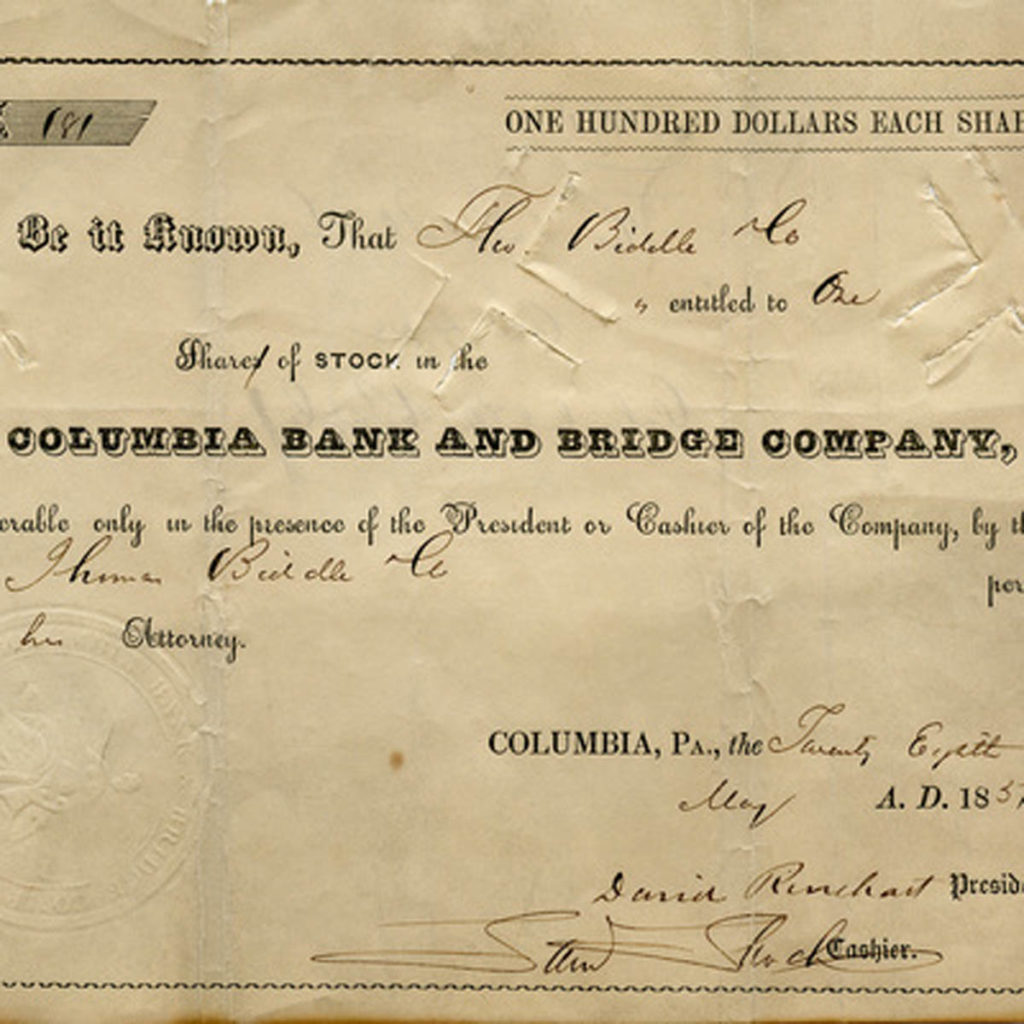 181
ONE HUNDRED DOLLARS EACH SHAR
Be it Known, That Tho. Biddle & Co
" entitled to One
Shares of STOCK in the
COLUMBIA BANK AND BRIDGE COMPANY,
erable only in the presence of the President or Cashier of the Company, by th
Thomas Biddle & Co
per
his Attorney.
COLUMBIA, PA., the Twenty Eighth
May A. D. 1857
David Rinehart Presid
Cashier.